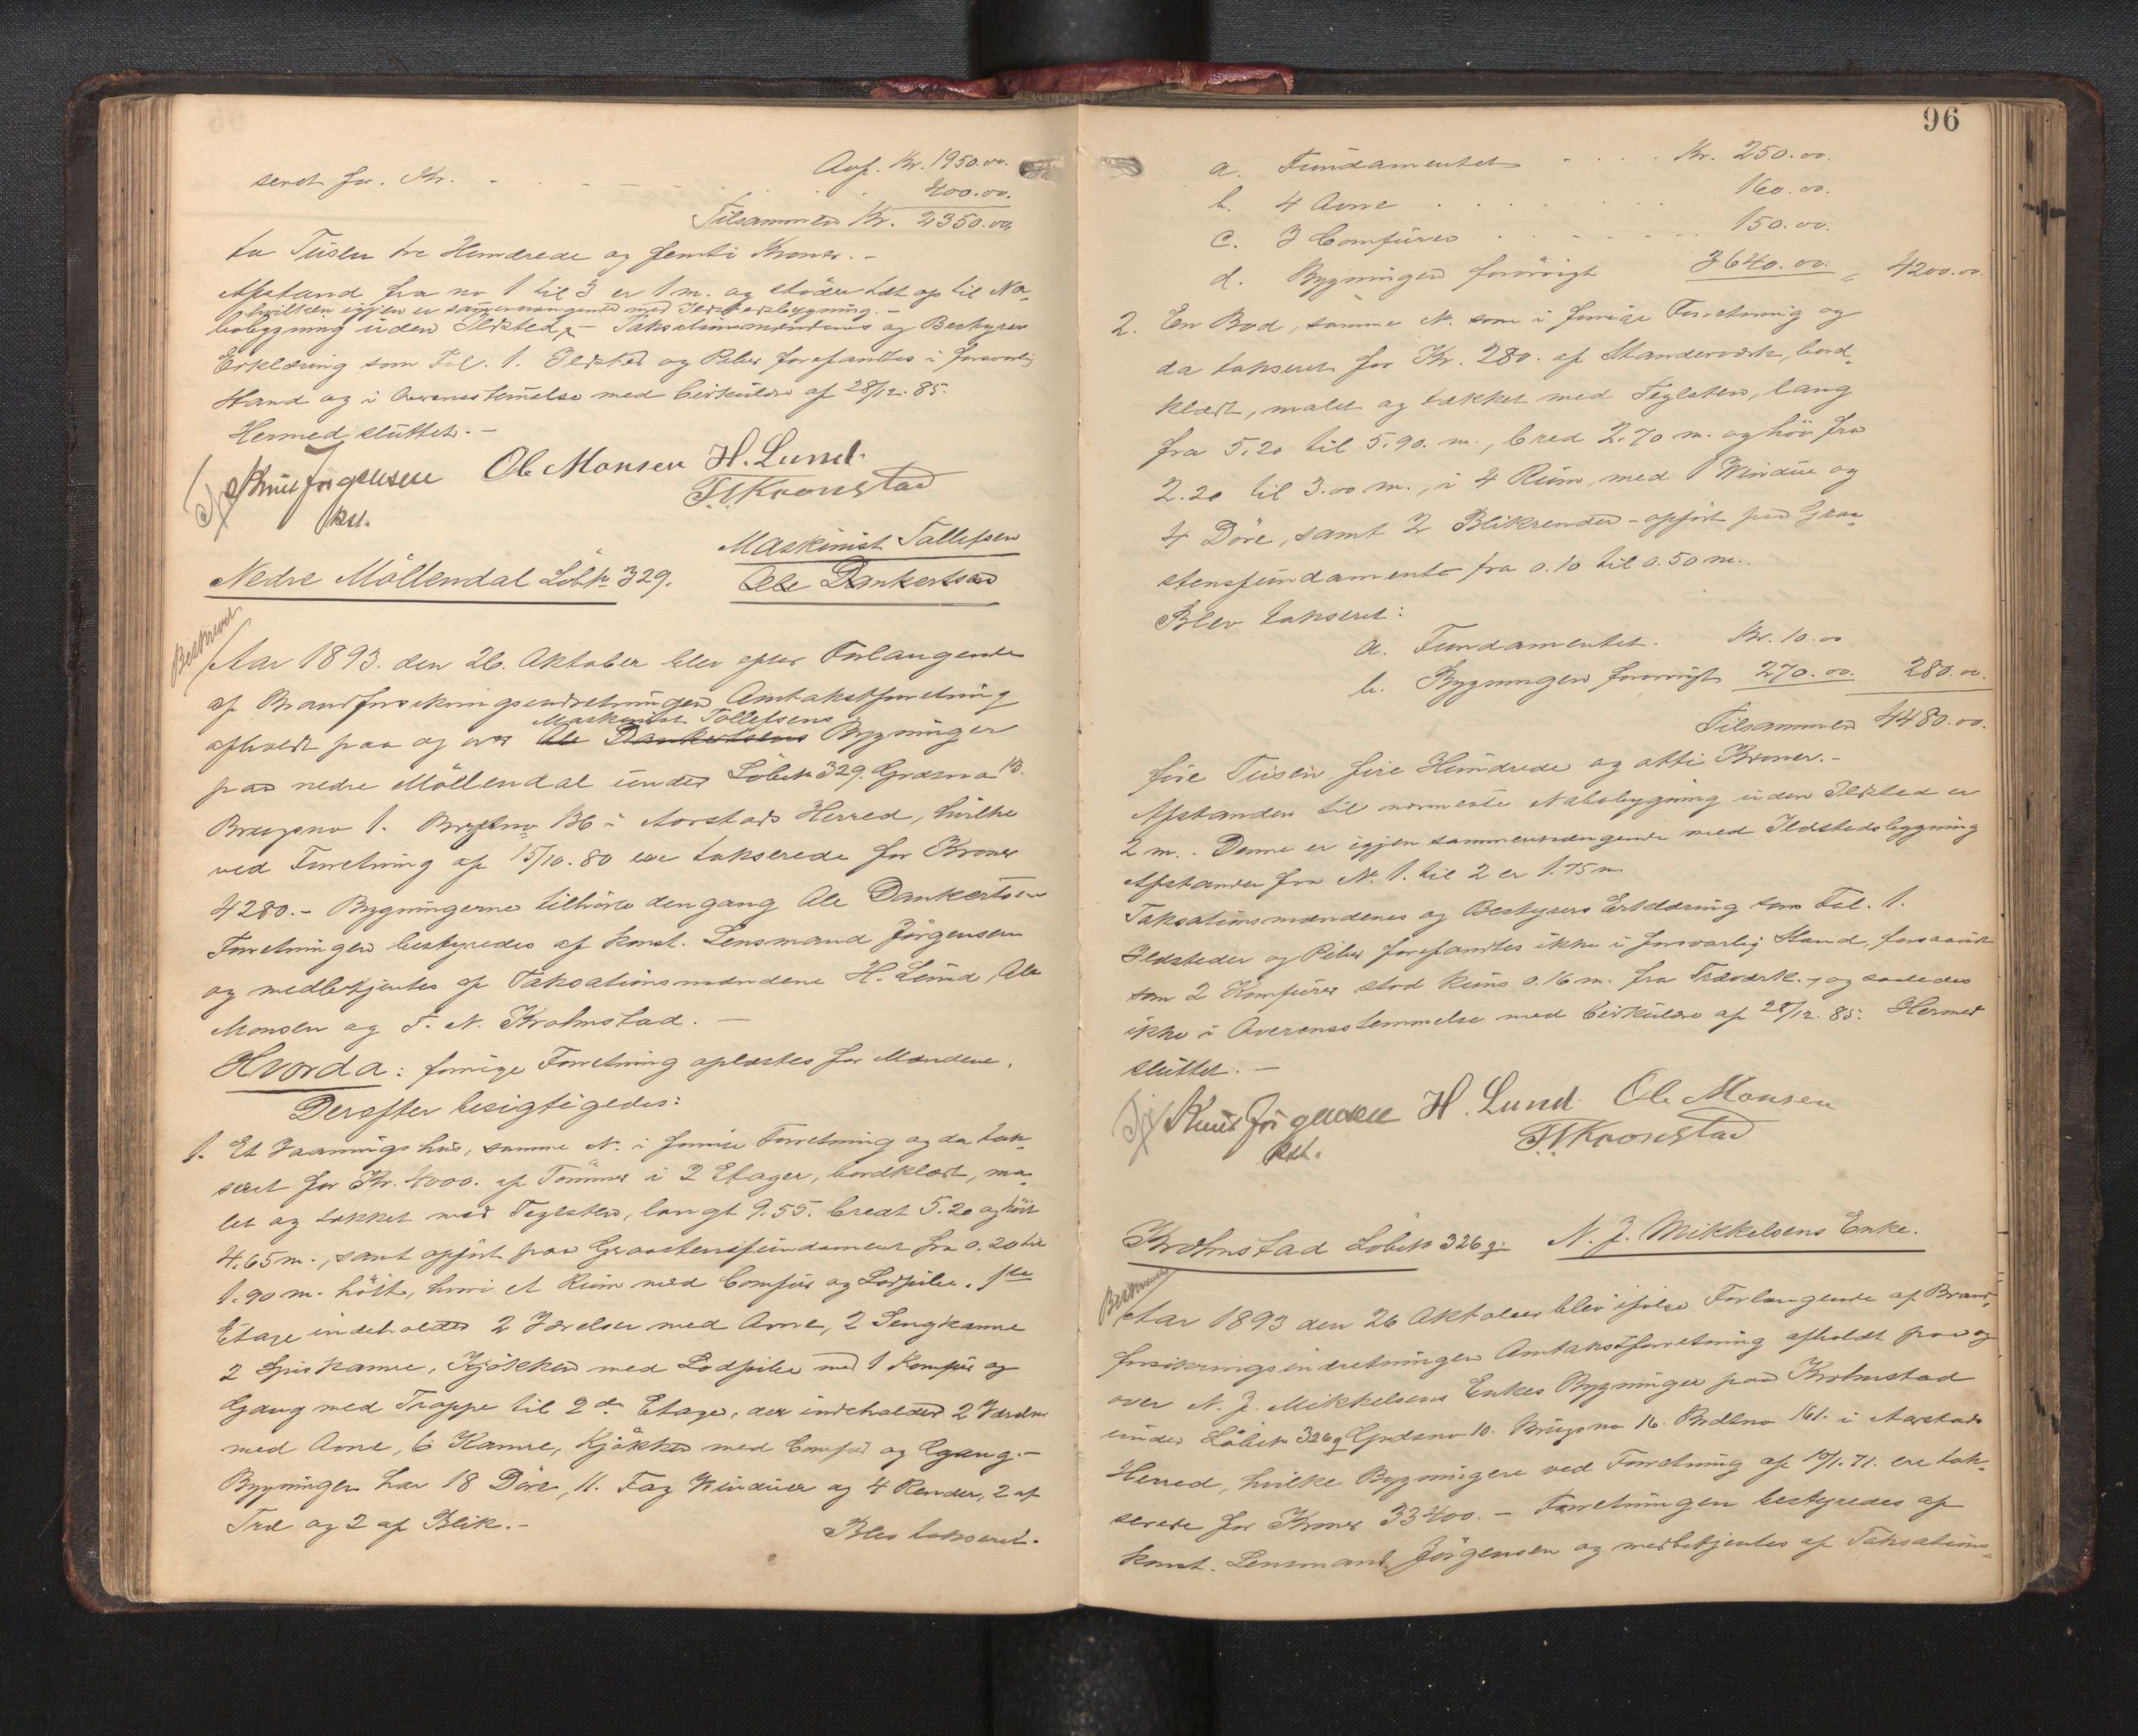 Aof. Kr. 1950.00.
seret for. Kr. - - - - - 400.00.
Tilsammen Kr. 2350.00.
to Tusen tre Hundrede og femti Kroner. -
Afstand fra no 1 til 3 er 1 m. og støder tæt op til Na-
hvilken igjen er sammenhængende med Ildstedsbygning. -
bobygning uden Ildsted, - Taksationsmændenes og Bestyrers
Erklæring som Fol. 1. Ildsted og Piber forefandtes i forsvarlig
Stand og i Overensstemmelse med Cirkulære af 28/12. 85.
Hermed sluttet. -
Knut Jørgensen Ole Monsen H. Lund.
kst. T. N. Kronstad
Maskinist Tollefsen
Nedre Möllendal Löbno 329. Ole Dankertsen
Beskrevet
Aar 1893. den 26. Oktober blev efter Forlangende
af Brandforsikringsindretningen Omtakstforretning
Maskinist Tollefsens
afholdt paa og over Ole Dankertsens Bygninger
paa nedre Möllendal under Löbno 329. Grdsno 13.
Brugsno 1. Brdtno 136 i Aarstads Herred, hvilke
ved Forretning af 15/10. 80 ere takserede for Kroner
4280. - Bygningerne tilhörte dengang Ole Dankertsen
Forretningen bestyredes af konst. Lensmand Jörgensen
og medbetjentes af Taksationsmændene H. Lund, Ole
Monsen og T. N. Krohnstad. -
Hvorda: forrige Forretning oplæstes for Mændene.
Derefter besigtigedes:
1. Et Vaaningshus, samme No. i forrige Forretning og da tak-
seret for Kr. 4000. af Tömmer i 2 Etager, bordklædt, ma-
let og tækket med Teglsten, langt 9.55. bredt 5.20 og höit
4.65 m., samt opfört paa Graastensfundament fra 0.20 til
1.90 m. höit, hvori et Rum med Comfur og Lodpibe. 1ste
Etage indeholder 2 Værelser med Ovne, 2 Sengkamre
2 Spiskamre, Kjökken med Lodpibe med 1 Komfur og
Gang med Trappe til 2den Etage, der indeholder 2 Værelser
med Ovne, 6 Kamre, Kjökken med Comfur og Gang. -
Bygningen har 18 Döre, 11. Fag Vinduer og 4 Render, 2 af
Træ og 2 af Blik. - Blev takseret.
96
a. Fundamentet - - - - Kr. 250.00.
b. 4 Ovne - - - - 160.00.
c. 3 Comfurer - - - - 150.00.
d. Bygningen forövrigt 3640.00. = 4200.00.
2. En Bod, samme No. som i forrige Forretning og
da takseret for Kr. 280. af Standerværk, bord-
klædt, malet og tækket med Teglsten, lang
fra 5.20 til 5.90. m., bred 2.70 m. og höi fra
2.20 til 3.00 m., i 4 Rum, med 1 Vindue og
4 Döre, samt 2 Blikrender - opfört paa Graa-
stensfundament fra 0.10 til 0.50 m.
Blev takseret:
a. Fundamentet. Kr. 10.00
b. Bygningen forövrigt 270.00. 280.00.
Tilsammen 4480.00.
fire Tusen fire Hundrede og otti Kroner. -
Afstanden til nærmeste Nabobygning uden Ildsted er
2 m. - Denne er igjen sammenhængende med Ildstedsbygning
Afstanden fra No. 1. til 2 er 1.75 m.
Taksationsmændenes og Bestyrers Erklæring som Fol. 1.
Ildsteder og Piber forefandtes ikke i forsvarlig Stand, forsaavidt
som 2 Komfurer stod kuns 0.16 m. fra Træværk, og saaledes
ikke i Overensstemmelse med Cirkulære af 28/12. 85. Hermed
sluttet. -
Knut Jørgensen H. Lund. Ole Monsen
kst. T. N. Kronstad
Krohnstad Löbno 326 g. N. J. Mikkelsens Enke.
Beskrevet
Aar 1893 den 26 Oktober blev ifölge Forlangende af Brand-
forsikringsindretningen Omtakstforretning afholdt paa og
over N. J. Mikkelsens Enkes Bygninger paa Krohnstad
under Löbno 326 g Grdsno 10. Brugsno 16. Brdtno 161. i Aarstads
Herred, hvilke Bygninger ved Forretning af 10/1. 71. ere tak-
serede for Kroner 33400. - Forretningen bestyredes af
konst. Lensmand Jörgensen og medbetjentes af Taksations-